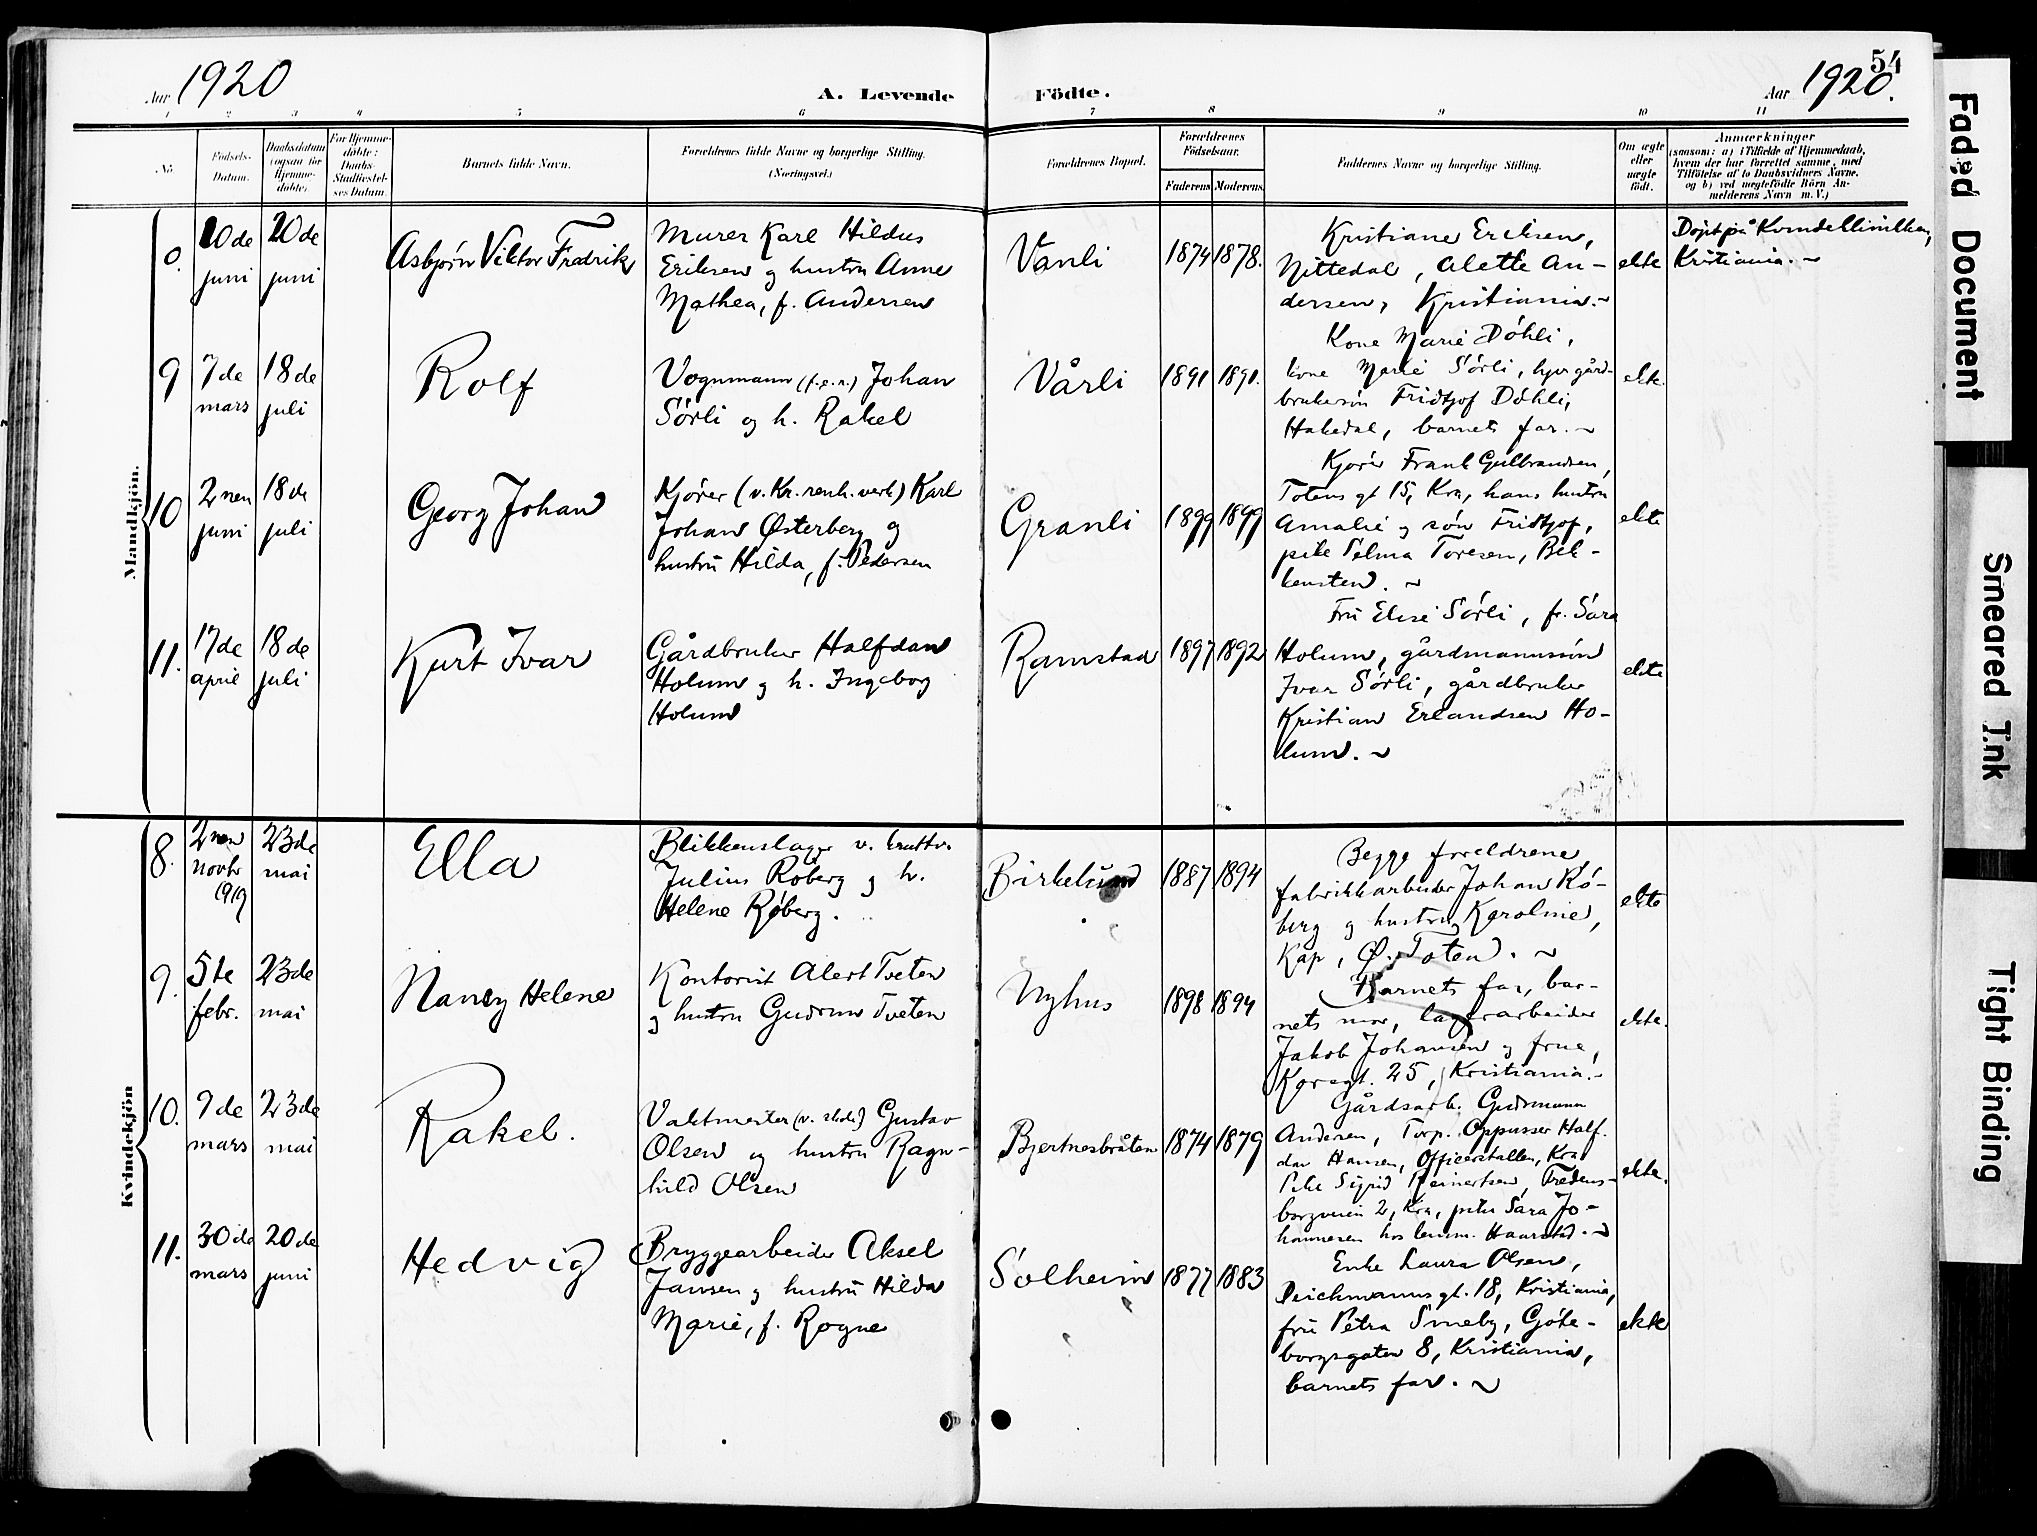 54
Aar 1920
A. Levende Födte.
Aar 1920.
1 2 3 4 5 6 7 8 9 10 11
No
Födsels-
Datum.
Daabsdatum
(ogsaa for
Hjemme-
döbte.)
For Hjemme-
döbte:
Daabs-
Stadfæstel-
ses Datum.
Barnets fulde Navn.
Forældrenes fulde Navne og borgerlige Stilling.
(Næringsvei.)
Forældrenes Bopæl.
Forældrenes
Födselsaar.
Faderens Moderens
Faddernes Navne og borgerlige Stilling.
Om ægte
eller
uægte
födt.
Anmærkninger
(saasom: a) i Tilfælde af Hjemmedaab,
hvem der har forrettet samme, med
Tilföielse af to Daabsvidners Navne,
og b) ved uegtefödte Börn An-
melderens Navn m. V.)
Mandkjön.
8.
10 de
juni
20 de
juni
Asbjørn Viktor Fredrik
Murer Karl Hildus
Eriksen og hustru Anne
Mathea, f. Andersen
Vanli
1874 1878.
Kristiane Eriksen,
Nittedal, Alette An-
dersen, Kristiania.~
ekte
Døpt på Kvindeklinikken,
Kristiania.~
9
7 de
mars
18 de
juli
Rolf
Vognmann (f.e.r.) Johan
Sørli og h. Rakel
Vårli
1891 1891.
Kone Marie Døhli,
kone Marie Sørli, hjor gård-
brukersøn Fridtjof Døhli,
Hakedal, barnets far.~
ekte.
10
2 nen
juni
18 de
juli
Georg Johan
Kjører (v. Kr. renh.verk) Karl
Johan Østerberg og
hustru Hilda, f. Pedersen
Granli
1899 1899
Kjører Frank Gulbrandsen,
Totens gt 15, Kra, hans hustru
Amalie og søn Fridtjof,
pike Selma Toresen, Bek-
kensten.~
ekte
11.
17 de
april
18 de
juli
Kurt Ivar
Gårdbruker Halfdan
Holum og h. Ingeborg
Holum
Ramstad
1897 1892
Fru Elise Sørli, fr. Sara
Holum, gårdmannssøn
Ivar Sørli, gårdbruker
Kristian Erlandsen Ho-
lum.~
ekte
Kvindekjön
8.
2 nen
novbr
1919
23 de
mai
Ella
Blikkenslager v. kruttv.
Julius Røberg og h.
Helene Røberg.
Birkelund
1887 1894
Begge foreldrene,
fabrikkarbeider Johan Rø-
berg og hustru Karoline,
Kap, Ø. Toten.~
ekte
9.
5 te
febr.
23 de
mai
Nancy Helene
Kontorist Alert Tveten
og hustru Gudrun Tveten
Nyhus
1898 1894
Barnets far, bar-
nets mor, lagerarbeider
Jakob Johansen og frue,
Korsgt. 25, Kristiania.~
ekte.
10.
9 de
mars
23 de
mai
Rakel.
Vaktmester Gustav
Olsen og hustru Ragn-
hild Olsen
Bjertnesbråten
1874 1879
Gårdsarb. Gudmann
Andersen, Torp. Oppasser Half-
dan Hansen, Officerstallen, Kra
Pike Sigrid Reinertsen, Fredens-
borgveien 2, Kra, pike Sara Jo-
hannesen hos lensm. Haarstad.~
ekte.
11.
30 de
mars
20 de
juni
Hedvig
Bryggearbeider Aksel
Jansen og hustru Hilda
Marie, f. Rogne
Solheim
1877 1883
Enke Laura Olsen,
Deichmanns gt. 18, Kristiania,
fru Petra Smeby, Gøte-
borggaten 8, Kristiania,
barnets far.~
ekte
Faded Document
Smeared Ink
Tight Binding